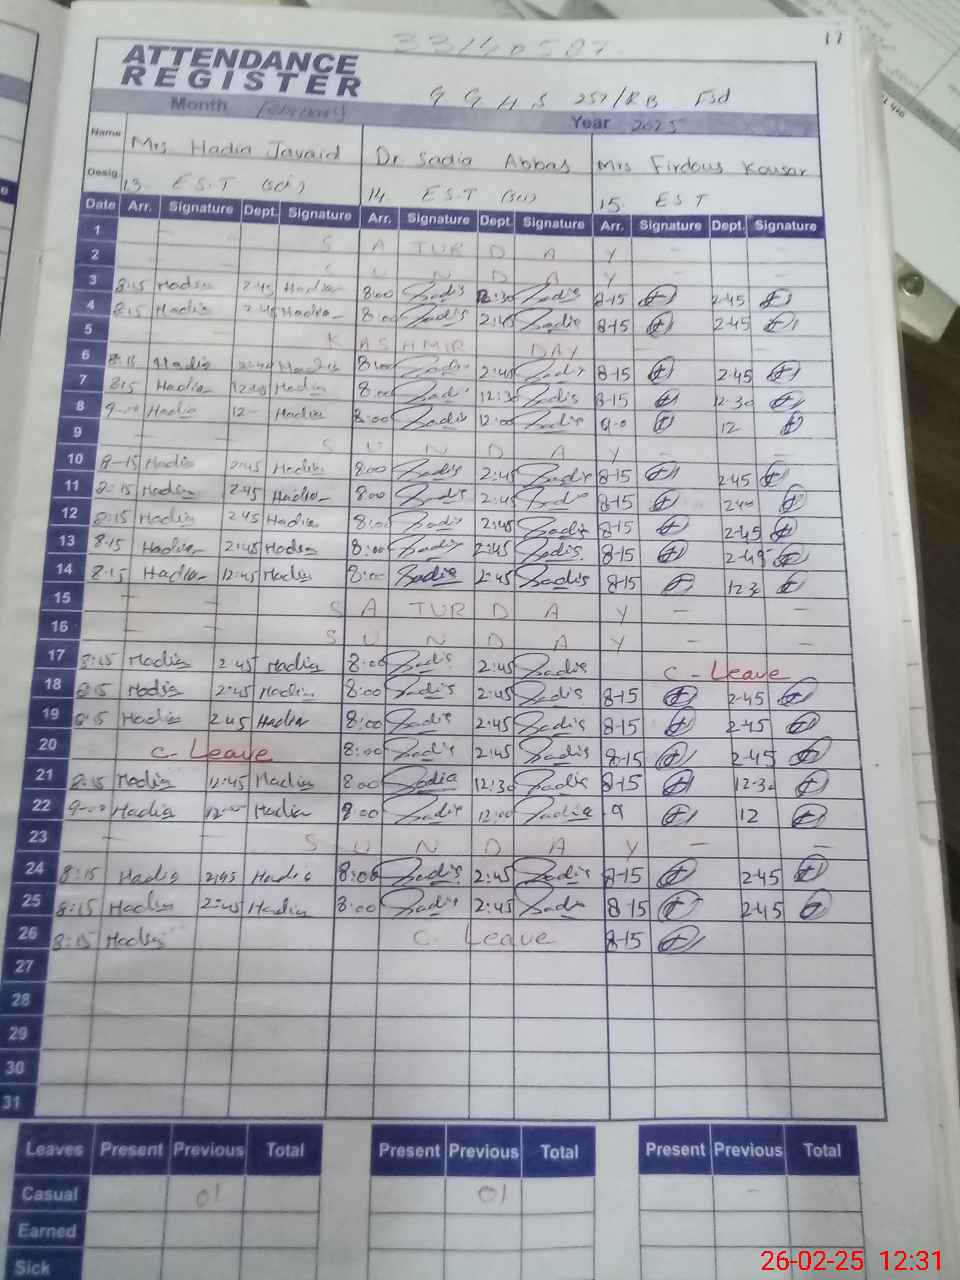 17
33140507
ATTENDANCE
REGISTER
G G H S 257/RB Fsd
Month
Year 2025
Name Mrs Hadia Javaid Dr Sadia Abbas Mrs Firdous Kousar
Desig. 13. E.S.T (sci) 14. E.S.T (sci) 15. E S T
Date Arr. Signature Dept. Signature Arr. Signature Dept. Signature Arr. Signature Dept. Signature
1 S A TUR D A Y
2 S U N D A Y
3 8:15 Hadia 2:45 Hadia 8:00 Sadia 2:30 Sadia 8-15 2-45
4 8:15 Hadia 2:45 Hadia 8:00 Sadia 2:45 Sadia 8-15 2-45
5 K A S H M I R D A Y
6 8:15 Hadia Hadia 8:00 Sadia 2:45 Sadia 8-15 2-45
7 8:15 Hadia 12:45 Hadia 8:00 Sadia 12:30 Sadia 8-15 12-30
8 9-00 Hadia 12- Hadia 8:00 Sadia 12:00 Sadia 9-0 12
9 S U N D A Y
10 8-15 Hadia 2:45 Hadia 8:00 Sadia 2:45 Sadia 8-15 2-45
11 8:15 Hadia 2:45 Hadia 8:00 Sadia 2:45 Sadia 8-15
12 8:15 Hadia 2:45 Hadia 8:00 Sadia 2:45 Sadia 8-15 2-45
13 8:15 Hadia 2:45 Hadia 8:00 Sadia 2:45 Sadia 8-15 2-45
14 8:15 Hadia 12:45 Hadia 8:00 Sadia 2:45 Sadia 8-15 12-3
15 S A TUR D A Y
16 S U N D A Y
17 8:15 Hadia 2:45 Hadia 8:00 Sadia 2:45 Sadia C-Leave
18 8:15 Hadia 2:45 Hadia 8:00 Sadia 2:45 Sadia 8-15 2-45
19 8:15 Hadia 2:45 Hadia 8:00 Sadia 2:45 Sadia 8-15 2-45
20 C-Leave 8:00 Sadia 2:45 Sadia 8-15 2-45
21 8:15 Hadia 12:45 Hadia 8:00 Sadia 12:30 Sadia 8-15 12-30
22 9-00 Hadia 12-00 Hadia 8:00 Sadia 12:00 Sadia 9 12
23 S U N D A Y
24 8:15 Hadia 2:45 Hadia 8:00 Sadia 2:45 Sadia 8-15 2-45
25 8:15 Hadia 2:45 Hadia 8:00 Sadia 2:45 Sadia 8-15 2-45
26 8:15 Hadia C. Leave 8-15
27
28
29
30
31
Leaves Present Previous Total Present Previous Total Present Previous Total
Casual 01 01 -
Earned
Sick
26-02-25 12:31